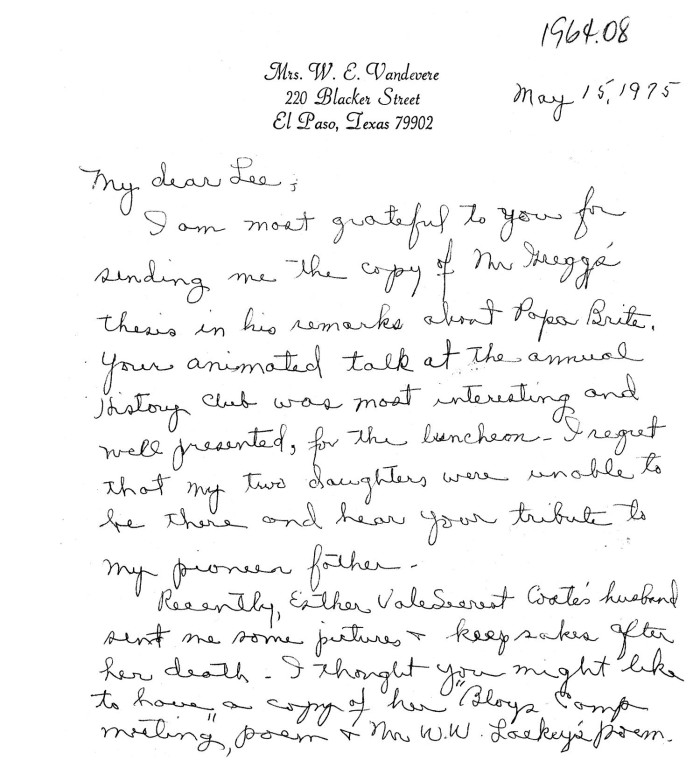 1964.08
Mrs. W. E. Vandevere
220 Blacker Street
El Paso, Texas 79902
May 15, 1975
My dear Lee;
I am most grateful to you for
sending me the copy of Mr Gregg's
thesis in his remarks about Papa Brite.
Your animated talk at the annual
History Club was most interesting and
well presented, for the luncheon - I regret
that my two daughters were unable to
be there and hear your tribute to
my pioneer father -
Recently, Esther Vale Coate's husband
sent me some pictures & keep sakes after
her death - I thought you might like
to have a copy of her "Bloys Camp
meeting", poem & Mr W.W. Lackey's poem.